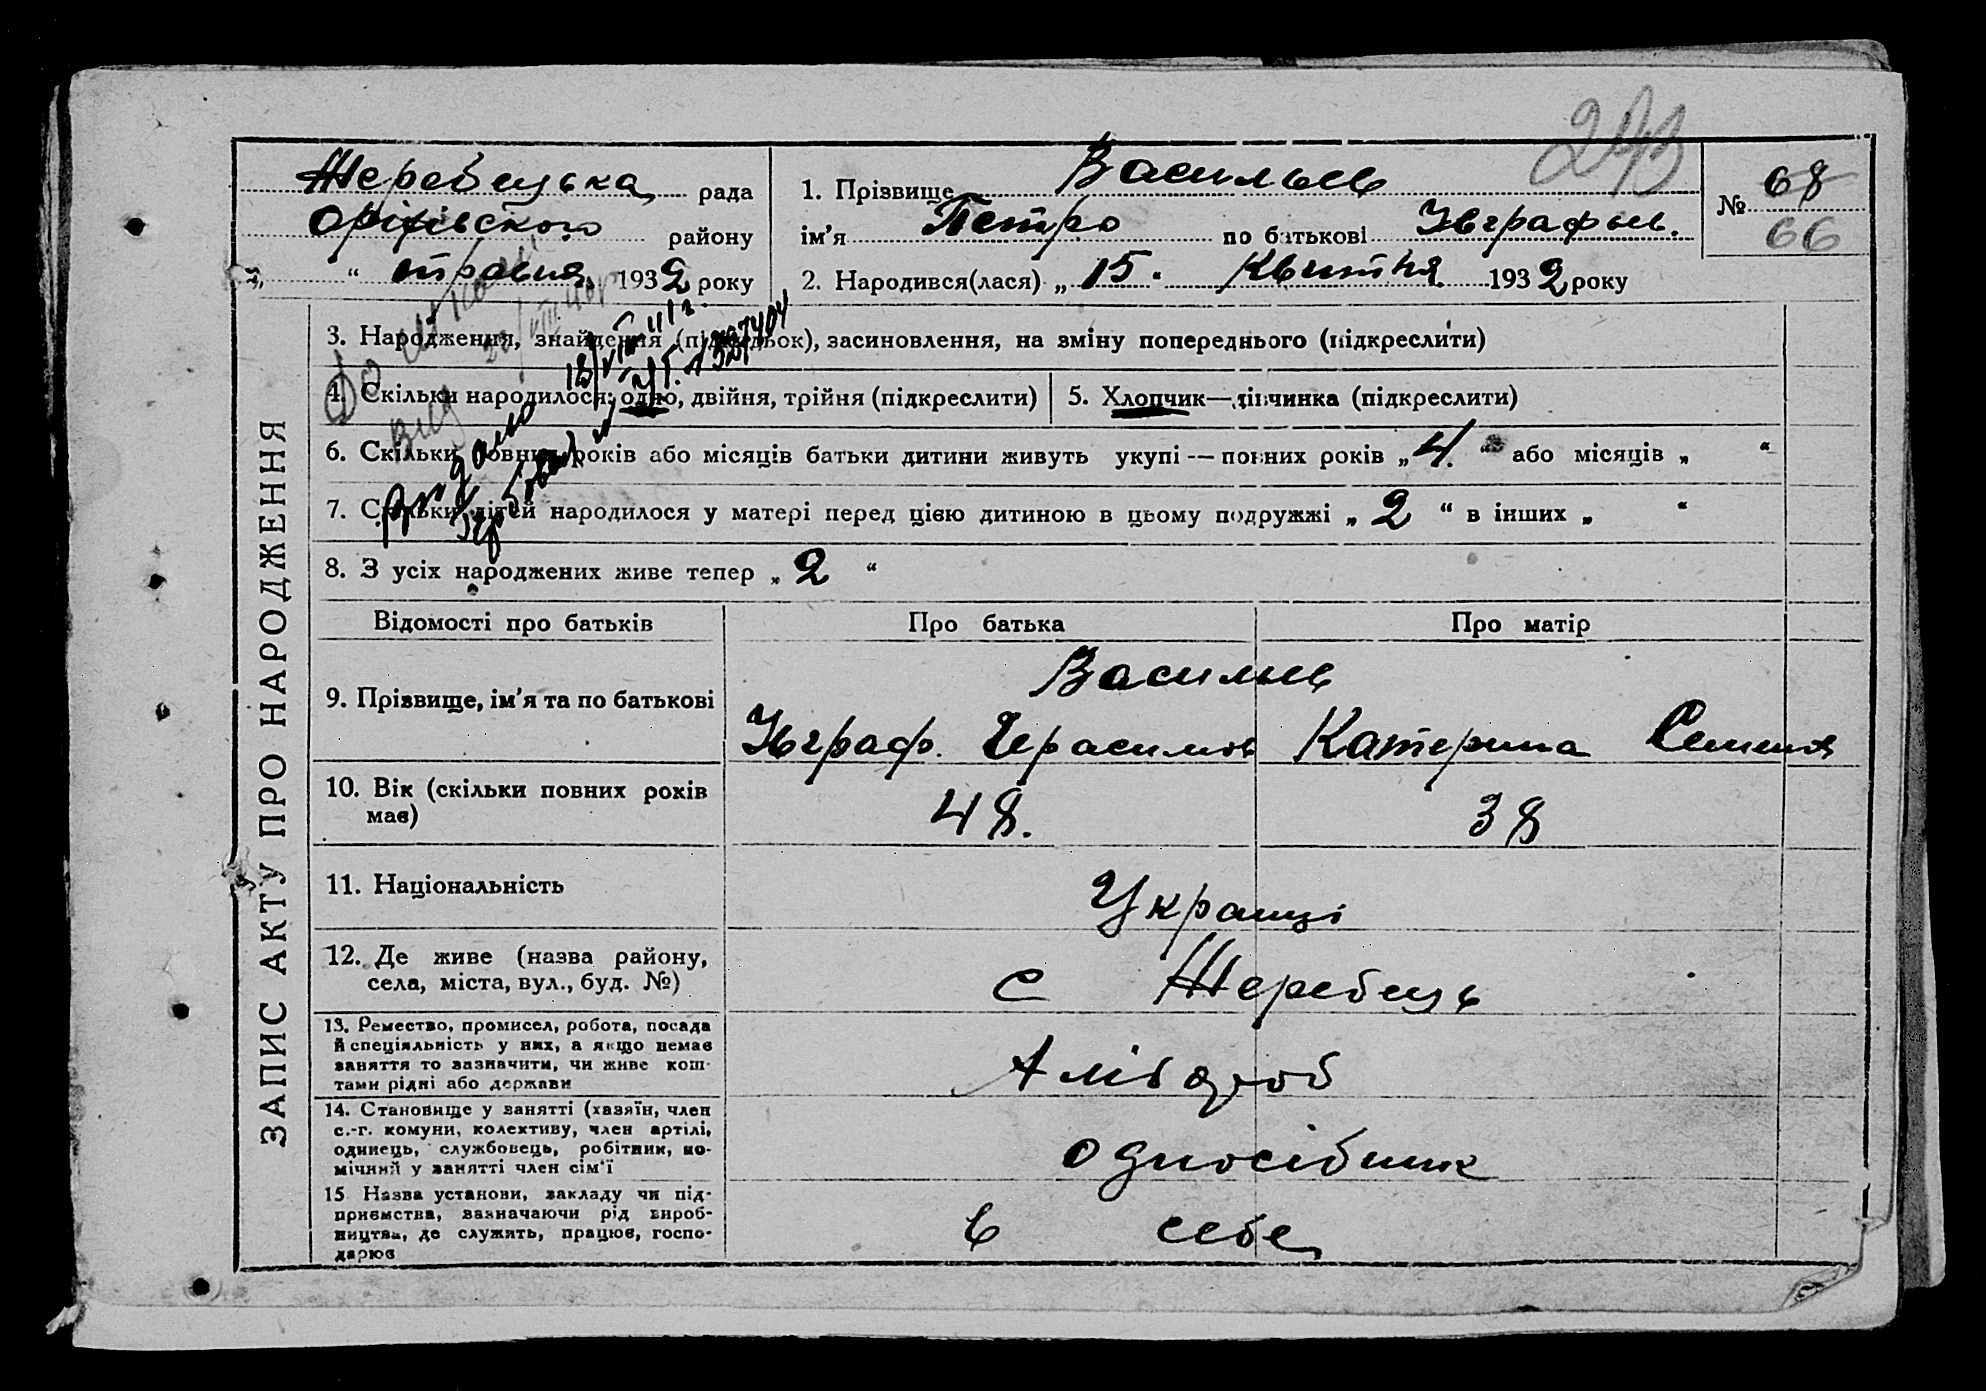 293
Жеребецька рада
Оріхівського району
„ “ травня 1932 року
1. Прізвище Васильєв
ім'я Петро по батькові Євграфьев.
2. Народився(лася) „ 15. Квитня 1932 року
№ 68
66
3. Народження, знайдення (підкидьок), засиновлення, на зміну попереднього (підкреслити)
4. Скільки народилося: одно, двійня, трійня (підкреслити)
5. Хлопчик—дівчинка (підкреслити)
6. Скільки повних років або місяців батьки дитини живуть укупі — повних років „ 4. “ або місяців „ “
7. Скільки дітей народилося у матері перед цією дитиною в цьому подружжі „ 2 “ в інших „ “
8. З усіх народжених живе тепер „ 2 “
Видано
ЗАПИС АКТУ ПРО НАРОДЖЕННЯ
Відомості про батьків
Про батька
Про матір
9. Прізвище, ім'я та по батькові
Васильєв
Євграф. Герасимов
Катерина Семенів
10. Вік (скільки повних років має)
48.
38
11. Національність
Українці
12. Де живе (назва району,
села, міста, вул., буд. №)
с Жеребець
13. Ремество, промисел, робота, посада
й спеціяльність у них, а якщо немає
заняття то зазначити, чи живе кош-
тами рідні або держави
Хлібороб
14. Становище у занятті (хазяїн, член
с.-г. комуни, колективу, член артілі,
одинець, службовець, робітник, по-
мічний у занятті член сім'ї
односібник
15 Назва установи, закладу чи під-
приємства, зазначаючи рід вироб-
ництва, де служить, працює, госпо-
дарює
в себе